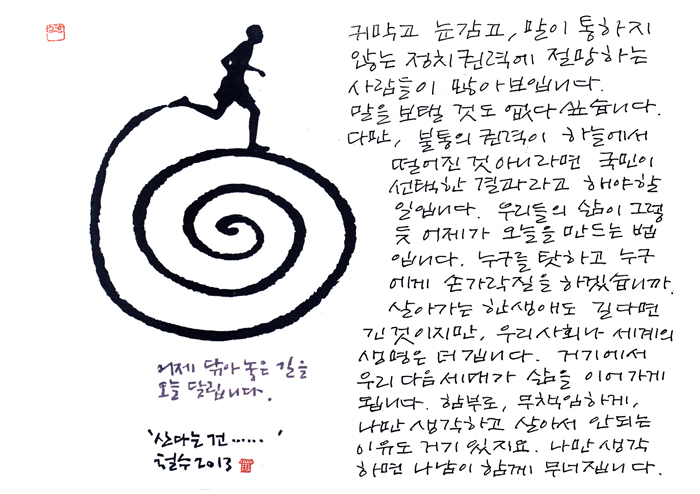 귀막고 눈감고, 말이 통하지
않는 정치권력에 절망하는
사람들이 많아보입니다.
말을 보탤 것도 없다 싶습니다.
다만, 불통의 권력이 하늘에서
떨어진 것 아니라면 국민이
선택한 결과라고 해야할
일입니다. 우리들의 삶이 그렇
듯 어제가 오늘을 만드는 법
입니다. 누구를 탓하고 누구
에게 손가락질을 하겠습니까.
살아가는 한생애도 길다면
긴 것이지만, 우리사회나 세계의
생명은 더 깁니다. 거기에서
우리 다음세대가 삶을 이어가게
됩니다. 함부로, 무책임하게,
나만 생각하고 살아서 안되는
이유도 거기 있지요. 나만 생각
하면 나남이 함께 무너집니다.
어제 닦아 놓은 길을
오늘 달립니다.
'산다는 건......'
철수 2013